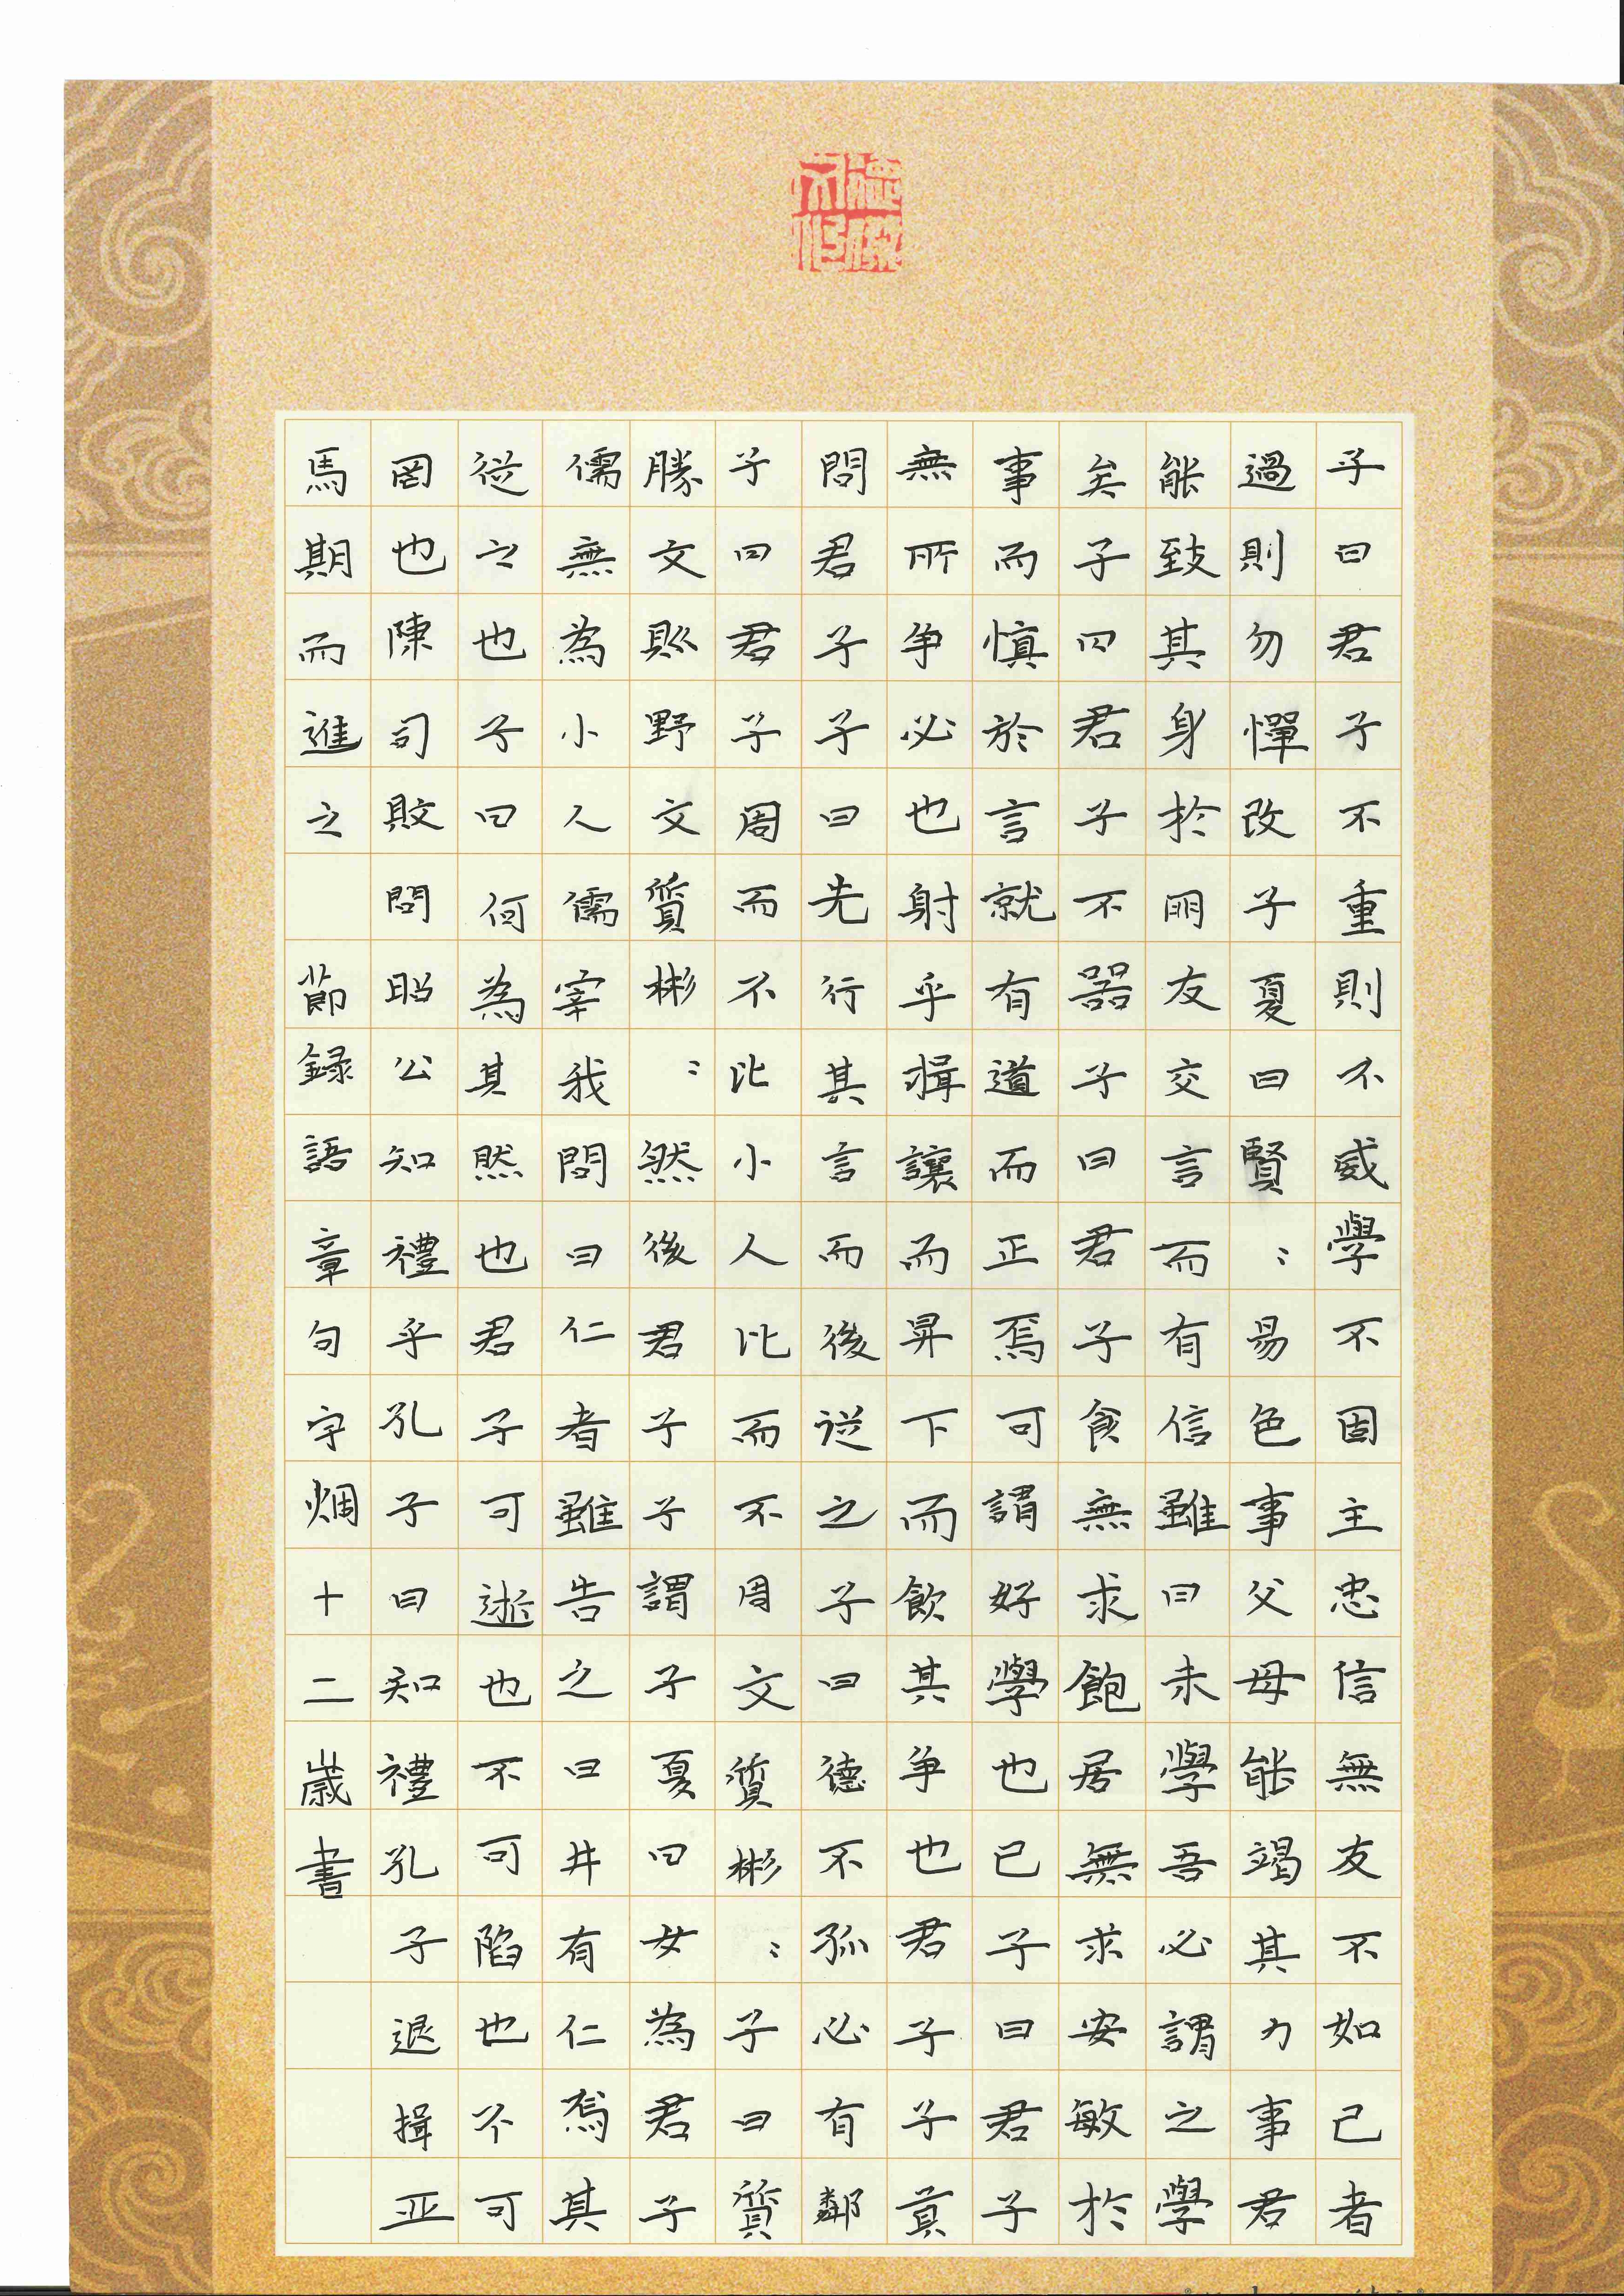 子曰君子不重則不威學不固主忠信無友不如己者
過則勿憚改子夏曰賢〻易色事父母能竭其力事君
能致其身於朋友交言而有信雖曰未學吾必謂之學
矣子曰君子不器子曰君子食無求飽居無求安敏於
事而慎於言就有道而正焉可謂好學也已子曰君子
無所争必也射乎揖讓而昇下而飲其争也君子子貢
問君子子曰先行其言而後從之子曰德不孤必有鄰
子曰君子周而不比小人比而不周文質彬〻子曰質
勝文則野文質彬〻然後君子子謂子夏曰女為君子
儒無為小人儒宰我問曰仁者雖告之曰井有仁焉其
從之也子曰何為其然也君子可逝也不可陷也不可
罔也陳司敗問昭公知禮乎孔子曰知禮孔子退揖巫
馬期而進之 節録語章句宇烱十二歲書